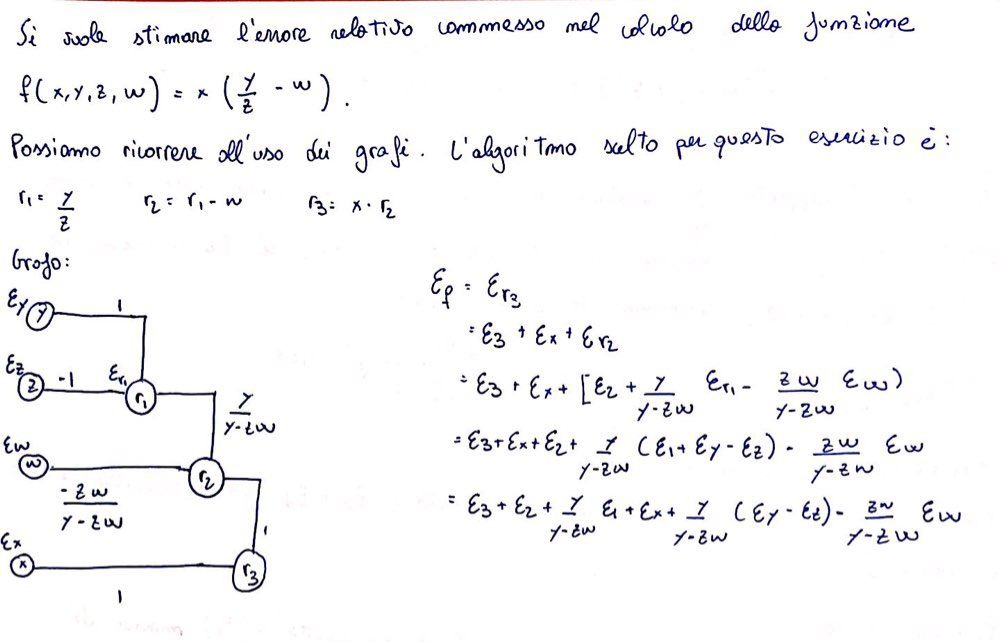 Si vuole stimare l'errore relativo commesso nel calcolo della funzione
f(x,y,z,w) = x (y/z - w).
Possiamo ricorrere all'uso dei grafi. L'algoritmo scelto per questo esercizio è:
r₁ = y/z r₂ = r₁ - w r₃ = x · r₂
Grafo:
εy y 1
εz z -1 εr₁ r₁
y/(y-zw)
εw w r₂
-zw/(y-zw)
1
εx x r₃
1
εf = εr₃
= ε₃ + εx + εr₂
= ε₃ + εx + [ε₂ + y/(y-zw) εr₁ - zw/(y-zw) εw)
= ε₃+εx+ε₂+ y/(y-zw) (ε₁+εy-εz) - zw/(y-zw) εw
= ε₃+ε₂+ y/(y-zw) ε₁+εx+ y/(y-zw) (εy-εz) - zw/(y-zw) εw